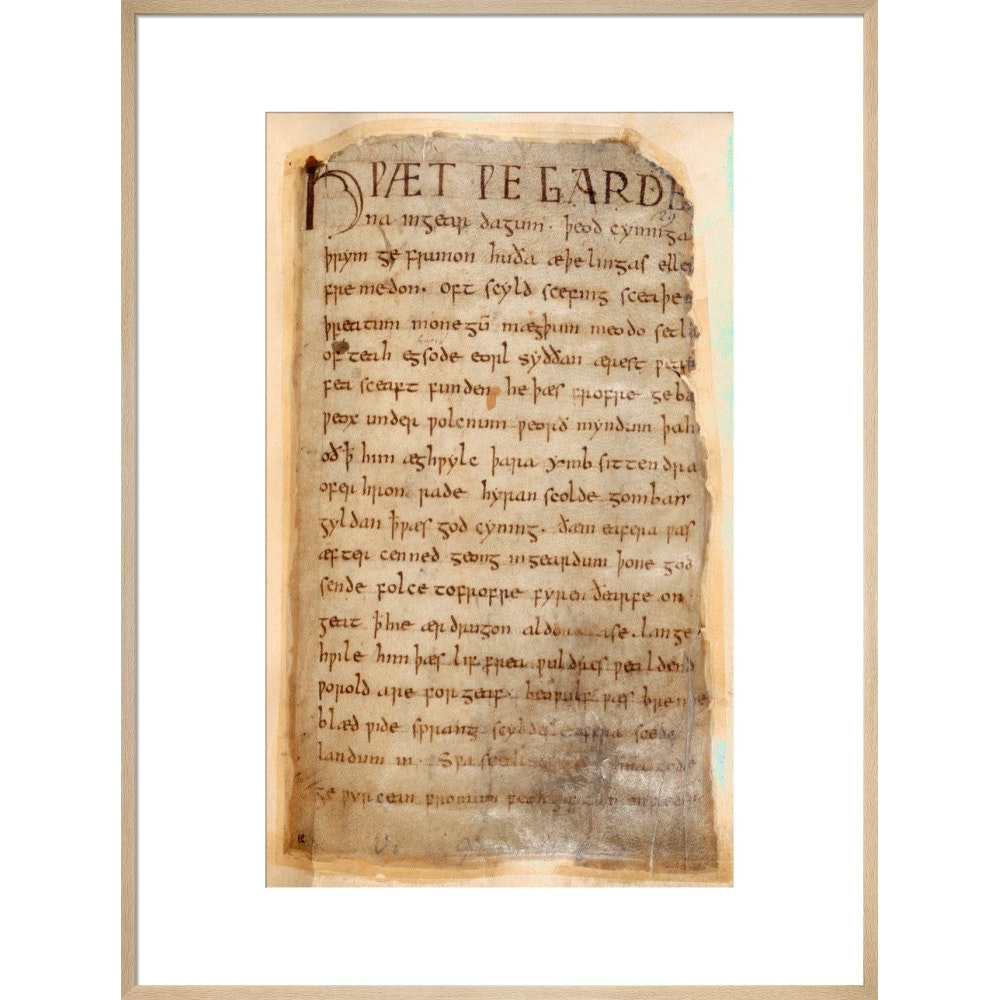 HǷÆT ǷE GARDE
na ingear dagum. þeod cyninga
þrym ge frunon huða æþelingas elle
fremedon. oft scyld scefing sceaþe
þreatum monegū mægþum meodo setla
of teah egsode eorl syððan ærest
fea sceaft funden he þæs frofre geba
ƿeox under ƿolcnum ƿeorð myndum þah
oð ꝥ him æghƿylc þara ymb sittendra
ofer hron rade hyran scolde gomban
gyldan ꝥ ƿæs god cyning. ðæm eafera ƿæs
æfter cenned geong in geardum þone god
sende folce tofrofre fyren ðearfe on
geat ꝥ hie ær drugon aldor ase. lange
hƿile him þæs lif frea ƿuldres ƿealdend
ƿorold are for geaf. beoƿulf ƿæs breme
blæd ƿide sprang scyldes eafera scede
landum in. Sƿa sceal guma gode
ge ƿyrcean fromum feoh